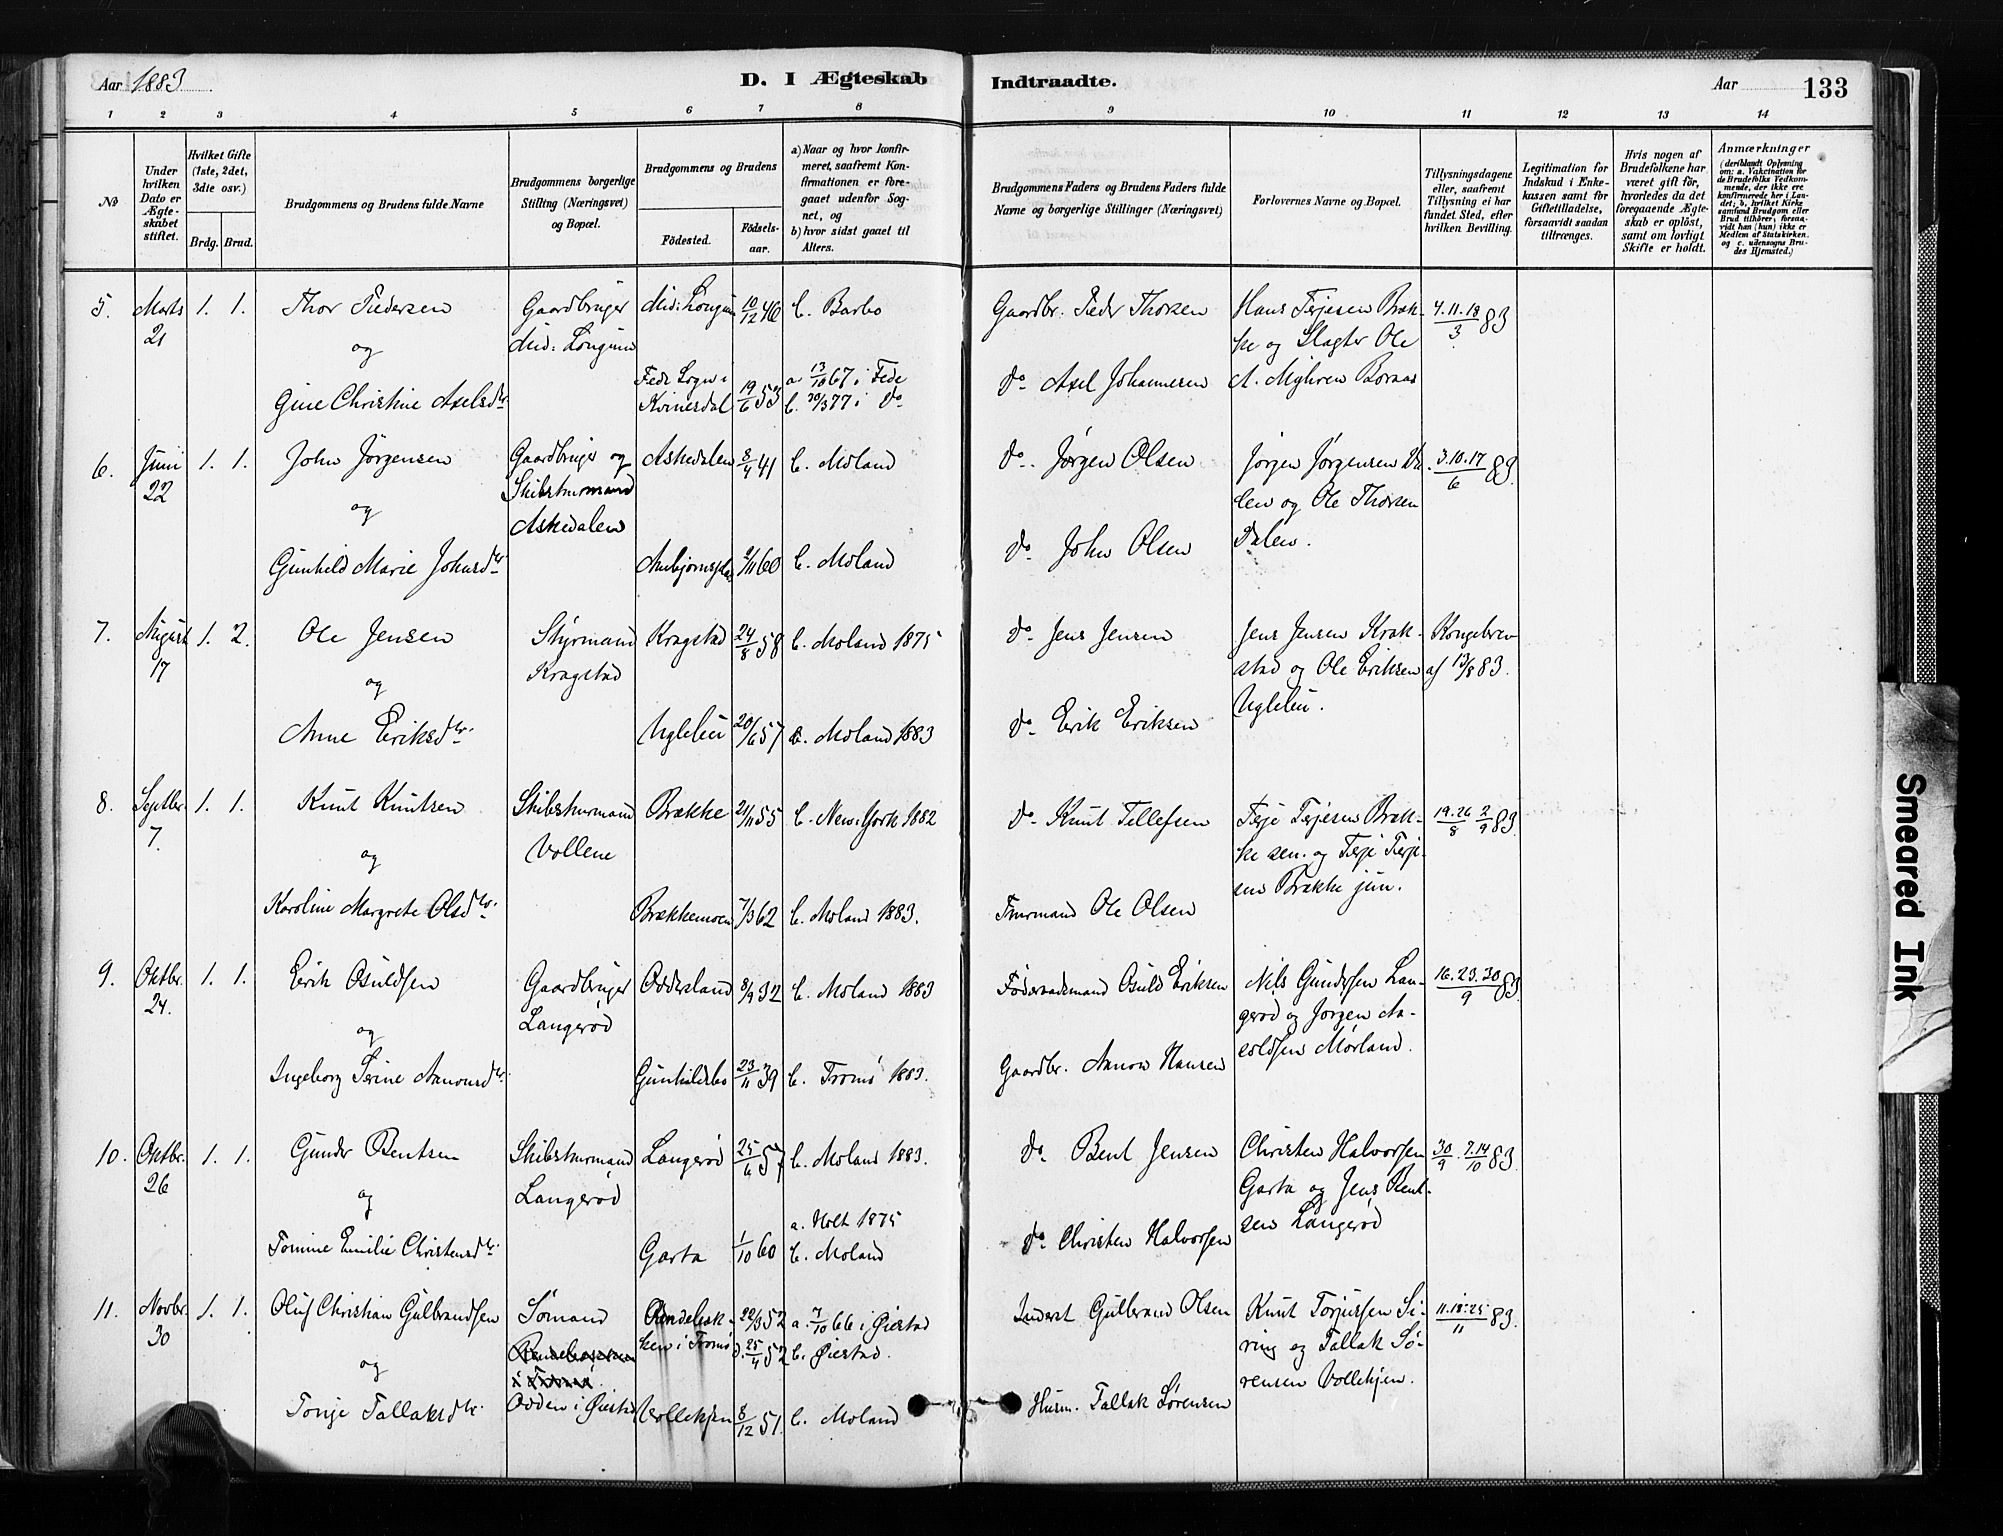 Aar 1883
D. I Ægteskab
Indtraadte.
Aar
133
1 2 3 4 5 6 7 8 9 10 11 12 13 14
No
Under hvilken Dato er Ægteskabet stiftet.
Hvilket Gifte (1ste, 2det, 3die osv.)
Brdg. Brud.
Brudgommens og Brudens fulde Navne
Brudgommens borgerlige Stilling (Næringsvei) og Bopæl.
Brudgommens og Brudens
Födested.
Födselsaar.
a) Naar og hvor konfirmeret, saafremt Konfirmationen er foregaaet udenfor Sognet, og
b) hvor sidst gaaet til Alters.
Brudgommens Faders og Brudens Faders fulde Navne og borgerlige Stillinger (Næringsvei)
Forlovernes Navne og Bopæl.
Tillysningsdagene eller, saafremt Tillysning ei har fundet Sted, efter hvilken Bevilling.
Legitimation for Indskud i Enkekassen samt for Giftetilladelse, forsaavidt saadan tiltrænges.
Hvis nogen af Brudefolkene har været gift för, hvorledes da det foregaaende Ægteskab er oplöst, samt om lovligt Skifte er holdt.
Anmærkninger
(deriblandt Oplysning om: a. Vakcination for de Brudefolks Vedkommende, der ikke ere konfirmerede her i Landet; b. hvilket Kirkesamfund Brudgom eller Brud tilhörer, forsaavidt han (hun) ikke er Medlem af Statskirken, og c. udensogns Brudes Hjemsted.)
5. Marts 21 1. 1. Thor Pedersen
Gaardbruger
Mid: Longum
Mid: Longum 10/12 46 b. Barbo
Gaardbr. Peder Thorsen
Hans Terjesen Brække og Slagter Ole
4.11.18/3 83
og
Gine Christine Axelsdtr.
Fede Sogn i Kvinesdal 19/6 53
a. 13/10 67 i Fede
b. 30/3 77 i Do
Do Axel Johannesen
6. Juni 22 1. 1. John Jörgensen
Gaardbruger og
Askedalen
Askedalen 8/4 41 b. Moland
Do. Jørgen Olsen
Jörgen Jørgensen Dalen og Ole Thorsen
Dalen.
3.10.17/6 83
og
Gunhild Marie Johnsdtr.
60 b. Moland
Do John Olsen
7. August 17 1. 2. Ole Jensen
Styrmand
Kragstad
Kragstad 24/8 58 b. Moland 1875
Do Jens Jensen
Jens Jensen Krakstad og Ole Eriksen
Uglelii.
Kongebrev
af 13/8 83.
og
Anne Eriksdtr.
Uglelii 20/6 57 b. Moland 1883
Do Erik Eriksen
8. Septbr. 7. 1. 1. Knut Knutsen
Vollene
Brække 21/11 55 b. New-York 1882
Do Knut Tellefsen
Terje Terjesen Brække sen. og Terje Terjesen Brække jun.
19.26/8 2/9 83.
og
Karoline Margrete Olsdtr.
Brækkemoen 7/3 62 b. Moland 1883.
Ole Olsen
9. Oktbr. 24. 1. 1. Erik Osuldsen
Gaardbruger
Langerød
Oddersland 8/9 32 b. Moland 1883
Föderaadsmand Osuld Eriksen
Nils Gundersen Langerød og Jørgen Aasoldsen Mørland.
16.23.30/9 83.
og
Ingeborg Serine Aanonsdtr.
Gunhildsbo 23/11 39 b. Tromö 1883.
Gaardbr. Aanon Hansen
10. Oktbr. 26 1. 1. Gunder Bentsen
Langerød
Langerød 25/6 57 b. Moland 1883.
Do Bent Jensen
Christen Halvorsen
Garta og Jens Bentsen Langerød
30/9. 7.14/10 83.
og
Tomine Emilie Christensdtr.
Garta 1/10 60
a. Holt 1875
b. Moland
Do Christen Halvorsen
11. Novbr. 30 1. 1. Oluf Christian Gulbrandsen
Sömand
Odden i Øiestad
i Tromö 22/3 52 a. 7/10 66 i Øiestad
b. Øiestad.
Inderst Gulbrand Olsen
Knut Torjussen Siring og Tallak Sørensen Vollekjen.
11.18.25/11 83.
og
Tonje Tallaksdtr.
Vollekjen 8/12 51. b. Moland
Husm. Tallak Sørensen
Smeared Ink